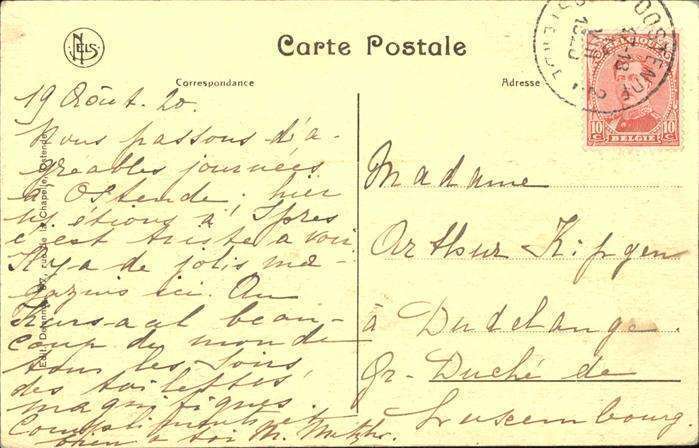 NELS
Carte Postale
Correspondance
Adresse
OOSTENDE
BELGIE
10 10
BELGIË
Edit. Daveluy, rue de la Chapelle, Ostende
19 Août. 20.
Nous passons d'a-
gréables journées
à Ostende; hier
ns étions à Ypres
c'est triste à voir
Il y a de jolis ma-
gazins ici. Au
Kursaal beau-
coup de monde
tous les soirs,
des toilettes,
magnifiques.
Compliments et
bien à toi M.
Madame
Arthur Kipgen
à Dudelange.
Gr. Duché de
Luxembourg